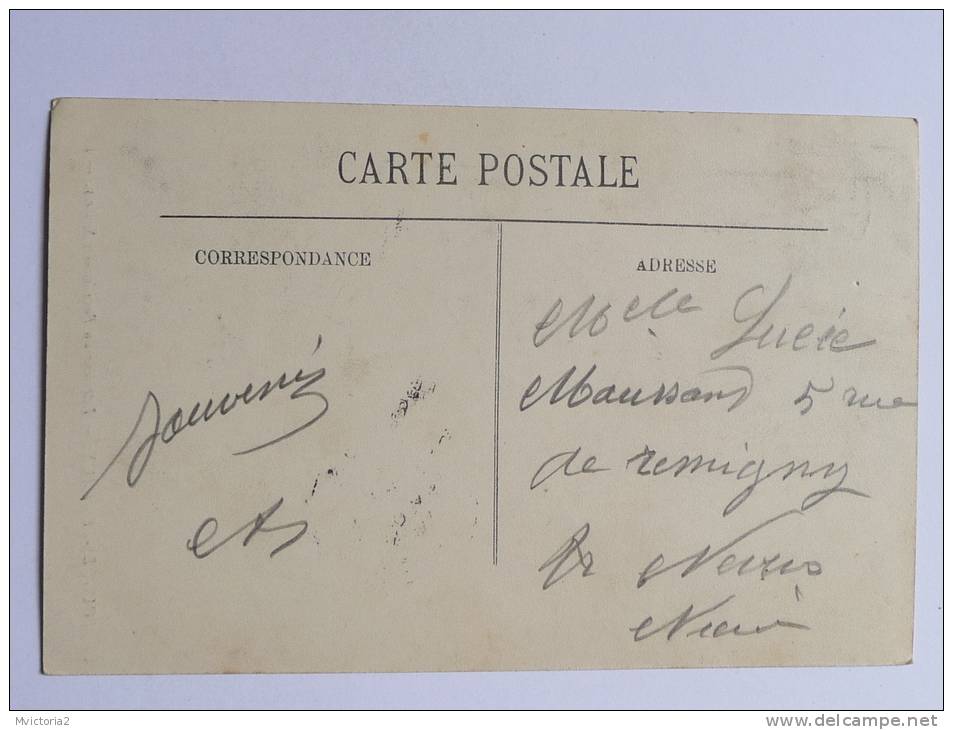 CARTE POSTALE
CORRESPONDANCE
Souvenir
ADRESSE
Mlle Lucie
5 rue
de remigny
Nevers
Mvictoria2
www.delcampe.net